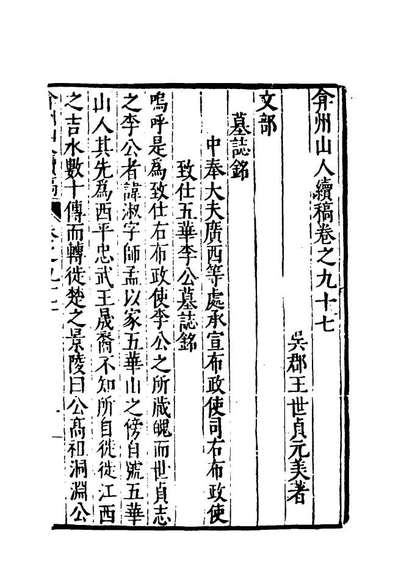 弇州山人續稿卷之九十七
吳郡王世貞元美著
文部
墓誌銘
中奉大夫廣西等處承宣布政使司右布政使
致仕五華李公墓誌銘
嗚呼是為致仕右布政使李公之所蕆魄而世貞志
之李公者諱淑字師孟以家五華山之傍自號五華
山人其先為西平忠武王晟裔不知所自徙徙江西
之吉水數十傳而轉徙楚之景陵曰公髙祖洞淵公